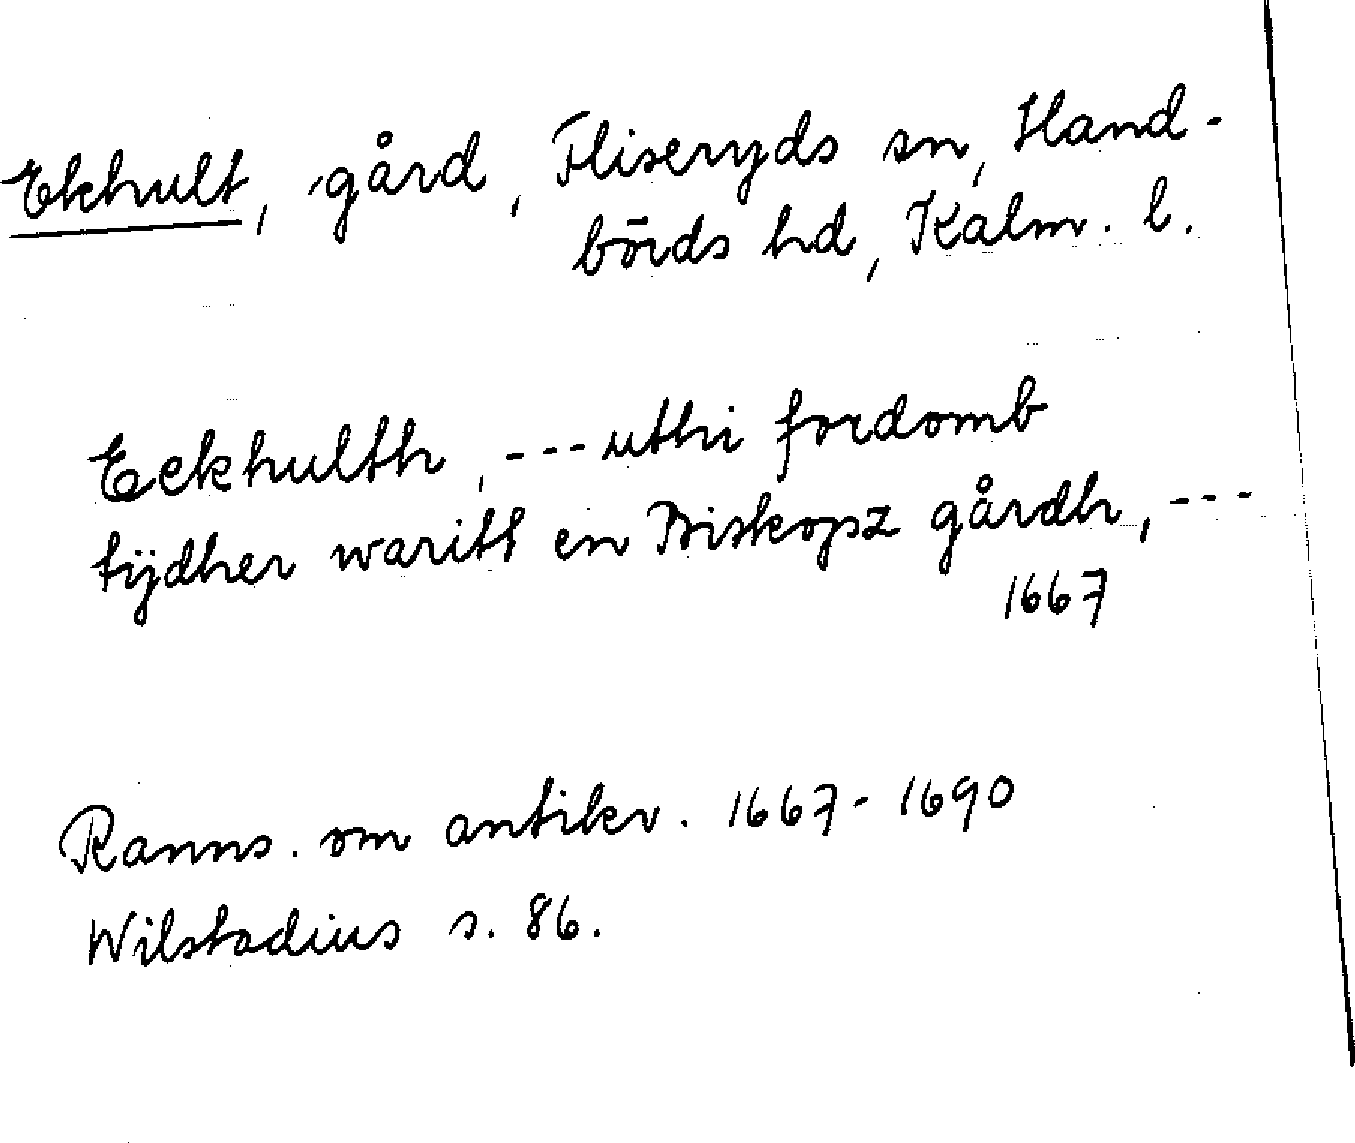 Ekhult, gård, Fliseryds sn, Hand-
börds hd, Kalm. l.
Eckhulth, --- uthi fordomb
tijdher waritt en Biskopz gårdh, ---
1667
Ranns. om antikv. 1667-1690
Wilstadius s. 86.